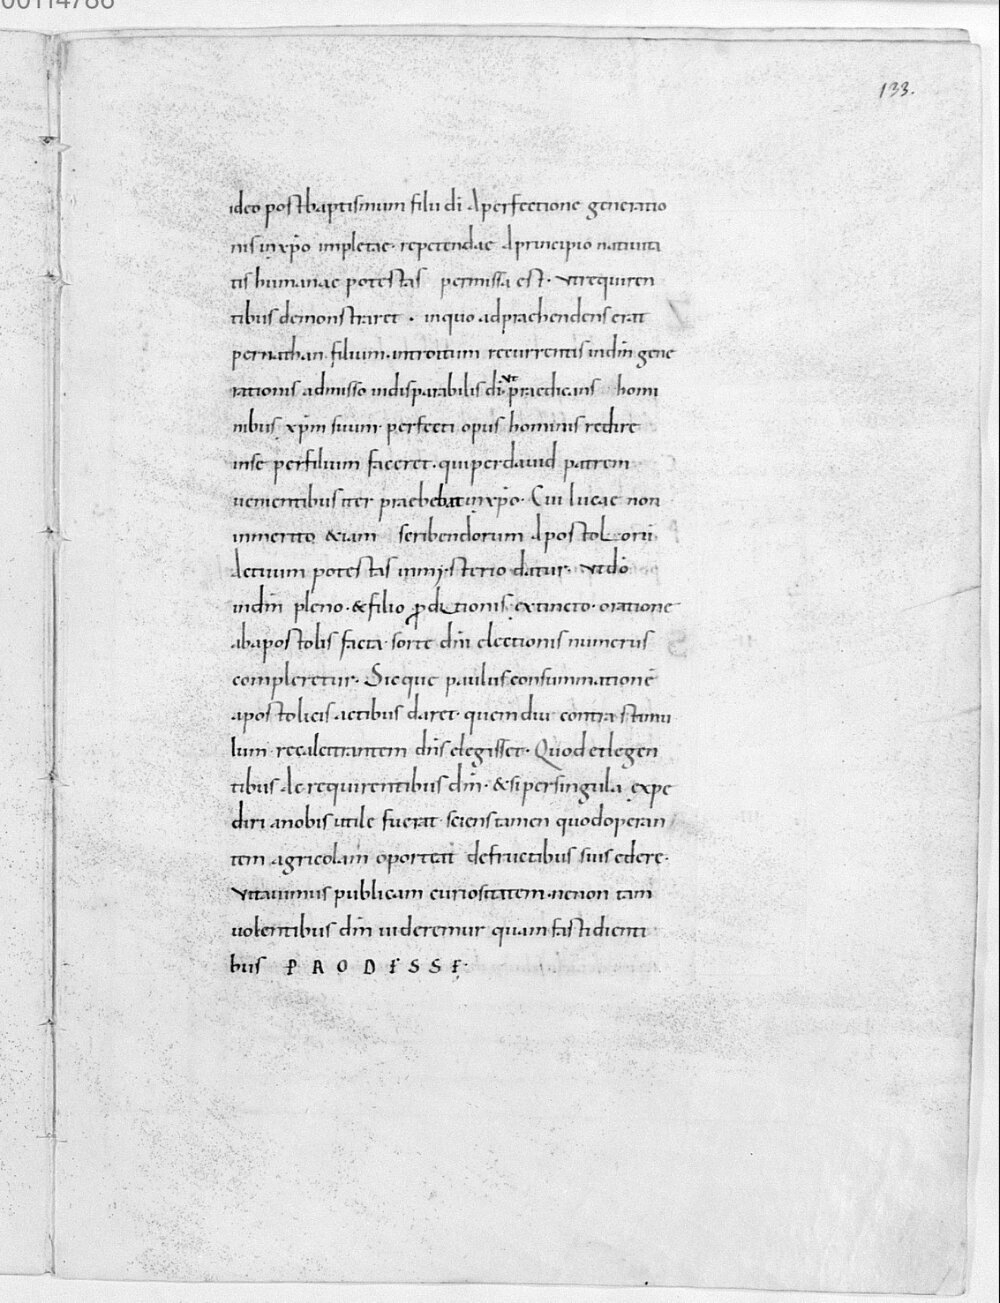 00114786
133.
ideo post baptismum filii di A perfectione generatio
nis in xp̄o impletae· repetendae A principio natiuita
tis humanae potestas permissa est· ut requiren
tibus demonstraret · in quo adpraehendens erat
per nathan filium· introitum recurrentis in dm̄ gene
rationis admisso indisparabilis di· ut praedicans homi
nibus xp̄m suum· perfecti opus hominis redire
in se per filium faceret· qui per dauid patrem
uenientibus iter praebebat in xp̄o· Cui lucae non
inmerito &iam scribendorum Apostolorū
Actuum potestas in mysterio datur· ut dō
in dm̄ pleno· & filio proditionis extincto· oratione
ab apostolis facta· sorte dnī electionis numerus
compleretur· Sicque paulus consummationē
apostolicis actibus daret· quem diu contra stimu
lum recalcitrantem dns̄ elegisset· Quod et legen
tibus Ac requirentibus dm̄· & si per singula expe
diri a nobis utile fuerat· sciens tamen quod operan
tem agricolam oporteat de fructibus suis edere·
Vitauimus publicam curiositatem· ne non tam
uolentibus dm̄ uideremur quam fastidienti
bus PRODESSE·